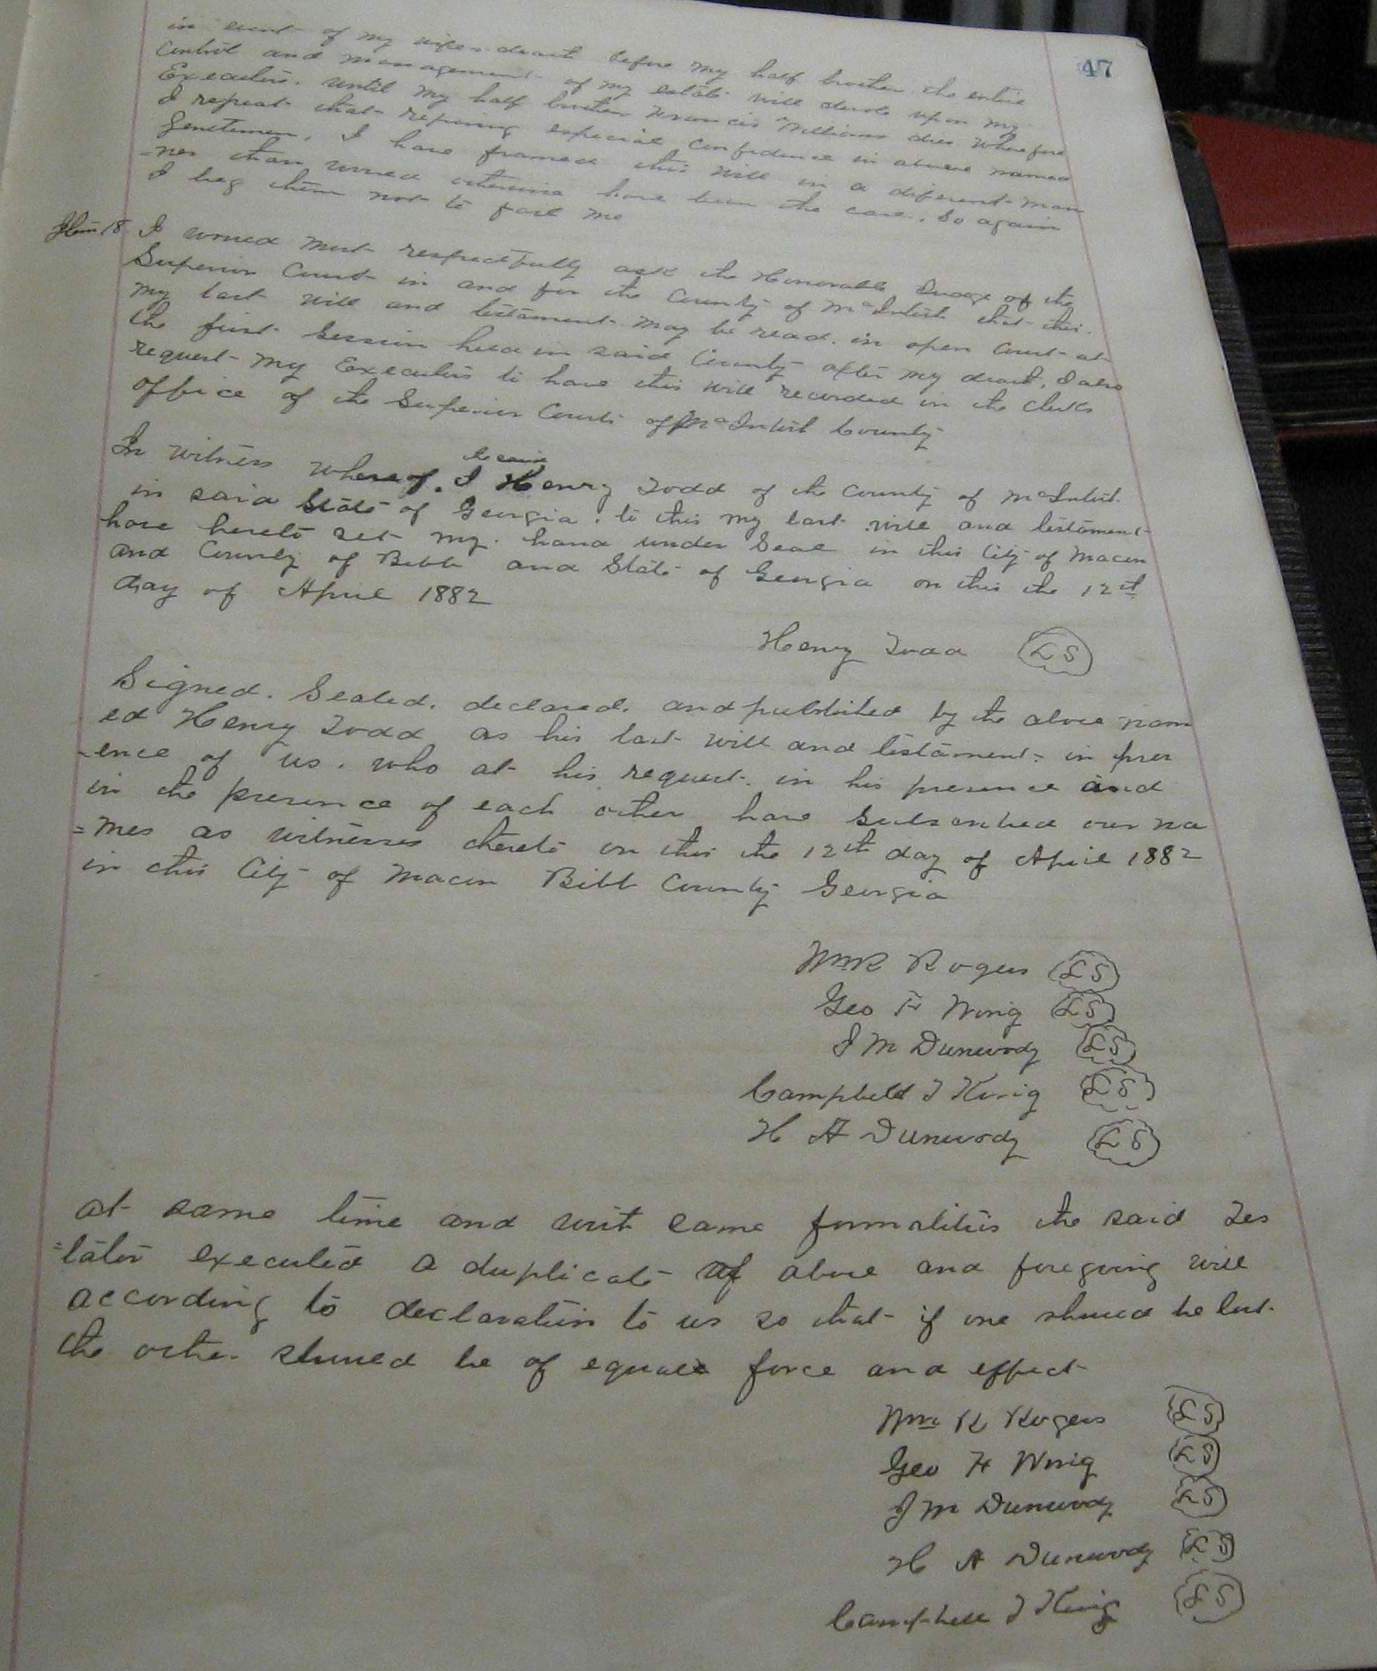 47
in event of my wifes death before my half brother, the entire
control and management of my estate will devolve upon my
Executors. until my half brother Francis Williams dies wherefore
I repeat that reposing especial confidence in above named
Gentlemen, I have framed this will in a diferent man
-ner than would otherwise have been the case. So again
I beg them not to fail me
Item 18 I would most respectfully ask the Honorable Judge of the
Superior Court in and for the County of McIntosh that this
my last will and testament may be read in open Court at
the first session held in said County after my death, I also
request my Executors to have this will recorded in the clerks
office of the Superior Court of McIntosh County
In witness whereof, I the said Henry Todd of the County of McIntosh
in said State of Georgia. to this my last will and testament
have hereto set my hand under Seal in this City of Macon
and County of Bibb and State of Georgia on this the 12th
day of April 1882
Henry Todd LS
Signed. Sealed. declared. and published by the above nam
ed Henry Todd as his last will and testament in pres
-ence of us. who at his request. in his presence and
in the presence of each other have subscribed our na
=mes as witnesses thereto on this the 12th day of April 1882
in this City of Macon Bibb County Georgia
Wm R Rogers LS
Geo H Wing LS
J M Dunwody LS
Campbell T King LS
H A Dunwody LS
at same time and with same formalities the said Tes
=tator executed a duplicate of above and foregoing will
according to declaration to us so that if one should be lost
the other should be of equal force and effect
Wm R Rogers LS
Geo H Wing LS
J M Dunwody LS
H A Dunwody LS
Campbell T King LS